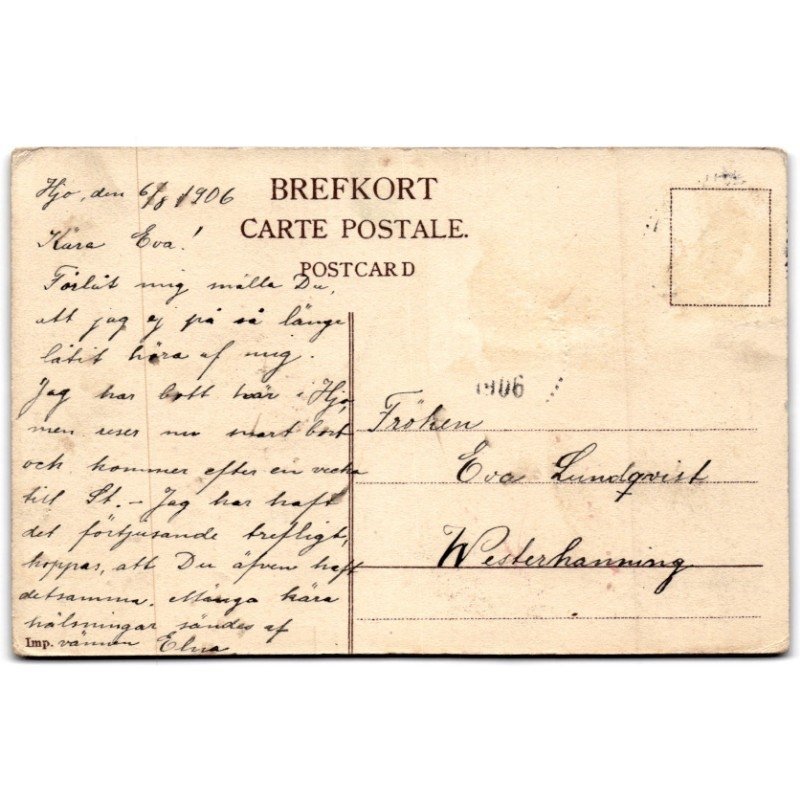 Hjo, den 6/8 1906
BREFKORT
CARTE POSTALE.
POSTCARD
Kära Eva!
Förlåt mig snälla Du,
att jag ej på så länge
låtit höra af mig.
Jag har bott här i Hjo,
men reser nu snart bort
och kommer efter en vecka
till St. – Jag har haft
det förtjusande trefligt,
hoppas, att Du äfven haft
detsamma. Många kära
hälsningar sändes af
vännen Elna
Imp.
1906
Fröken
Eva Lundqvist
Westerhanning